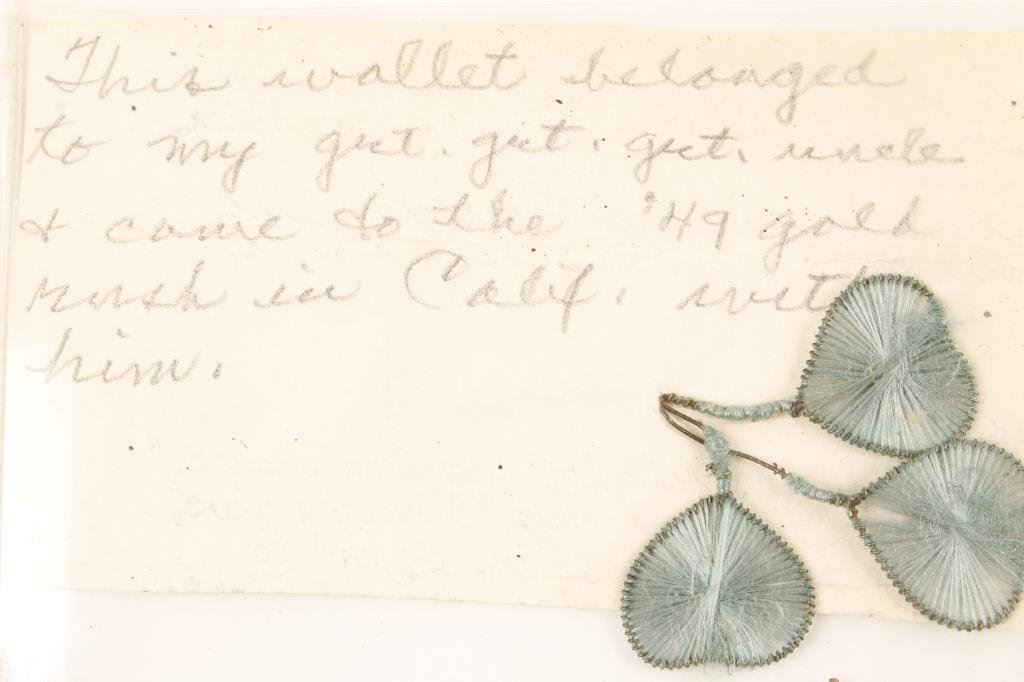 This wallet belonged
to my grt. grt. grt. uncle
& came to the '49 gold
rush in Calif. with
him.